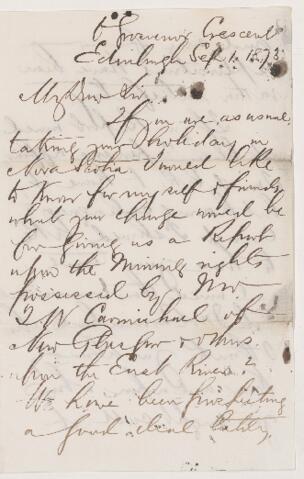 6 Grosvenor Crescent
Edinburgh Sep. 1. 1873
My Dear Sir
If you are, as usual,
taking your holiday in
Nova Scotia I would like
to know for myself & friends
what your charge would be
for giving us a Report
upon the Mining rights
possessed by Mr
J W Carmichael of
New Glasgow & others
upon the East River?
We have been prospecting
a good deal lately,